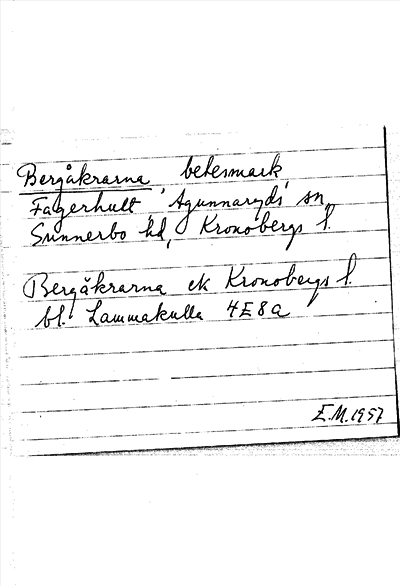 Bergåkrarna, betesmark,
Fagerhult, Agunnaryds sn,
Sunnerbo hd, Kronobergs l.
Bergåkrarna ek Kronobergs l.
bl. Lammakulla 4E8a
E.M. 1957